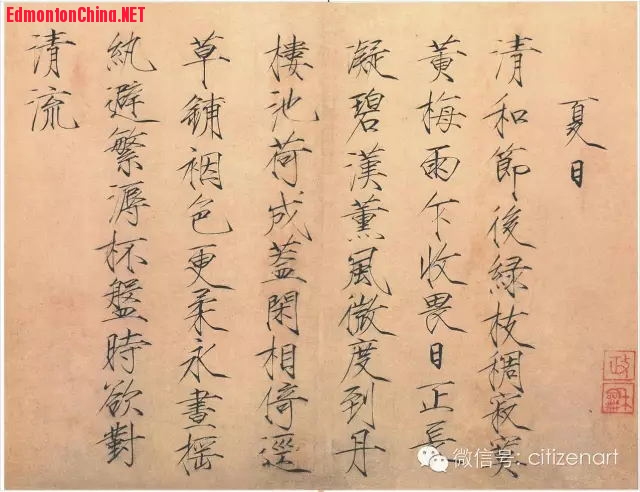 EdmontonChina.NET
夏日
清和節後綠枝稠寂寞
黃梅雨乍收畏日正長
凝碧漢薰風微度到丹
樓池荷成蓋閑相倚逕
草鋪裀色更柔永晝搖
紈避繁溽杯盤時欲對
清流
政
微信号: citizenart